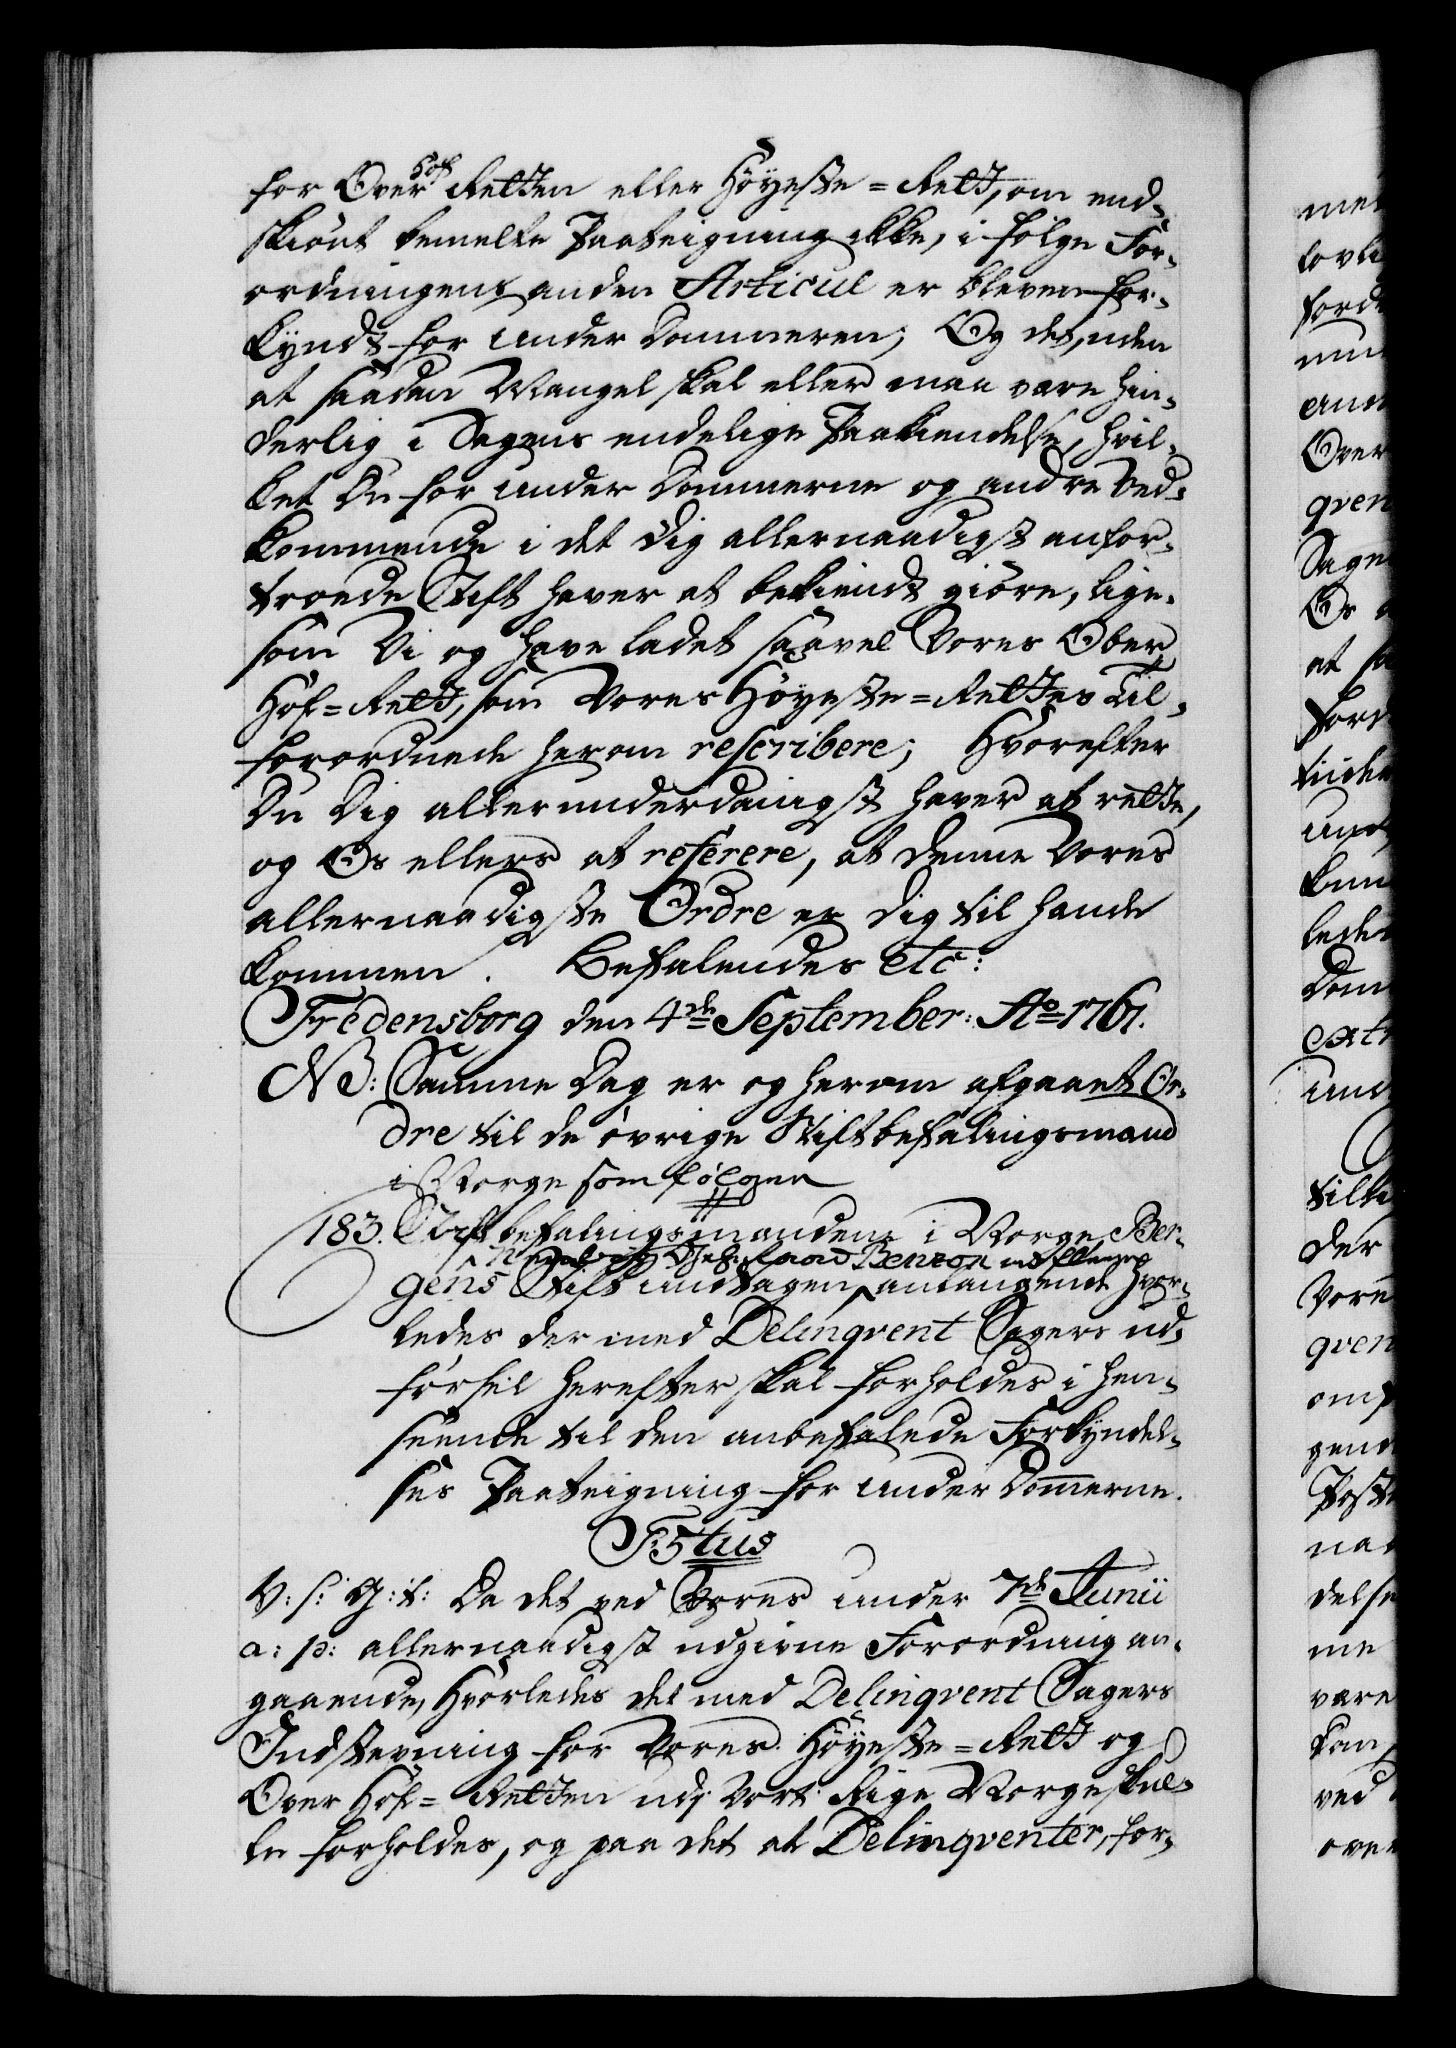 for Over Hof Retten eller Høyeste=Rett, om end-
skiønt bemelte Paateigning ikke, i følge For-
ordningens anden Articul er bleven for-
kyndt for under Dommeren; Og det, uden
at saadan Mangel skal eller maa være hin-
derlig i Sagens endelige Paakiendelse, hvil-
ket Du for under Dommerne og andre Ved-
kommende i det dig allernaadigst anfor-
troede Stift haver at bekiendt giøre, lige-
som Vi og have ladet saavel Vores Ober
Hof=Rett, som Vores Høyeste=Rettes Til-
forordnede herom rescribere; Hvorefter
Du Dig allerunderdanigst haver at rette,
og Os ellers at referere, at denne Vores
allernaadigste Ordre er dig til hande
kommen. Befalendes etc:
Fredensborg den 4de September: Ao 1761.
NB: Samme Dag er og herom afgaaet Or-
dre til de øvrige Stiftbefalingsmænd
i Norge som følger
183. Stiftbefalingsmændene i Norge, Ber-
gens Stift undtagen, anlangende hvor-
ledes der med Delinqvent Sagers ud-
førsel herefter skal forholdes i hen-
seende til den anbefalede Forkyndel-
ses Paateigning for under Dommerne.
F5tus
V: s: G: t: Da det ved Vores under 7de Junii
a: p: allernaadigst udgivne Forordning an-
gaaende, hvorledes det med Delinqvent Sagers
Indstevning for Vores Høyeste=Rett og
Over Hof=Retten udj Vort Rige Norge skul-
le forholdes, og paa det at Delinqventer, for-